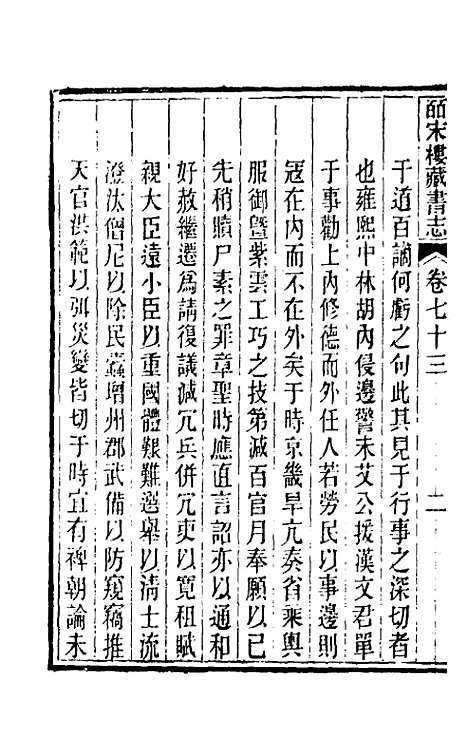 皕宋樓藏書志 卷七十三 二
于道百謫何虧之句此其見于行事之深切者
也雍熙中林胡內侵邊警未艾公援漢文君單
于事勸上內修德而外任人若勞民以事邊則
冦在內而不在外矣于時京畿旱亢奏省乘輿
服御暨紫雲工巧之技第減百官月奉願以已
先稍贖尸素之罪章聖時應直言詔亦以通和
好赦繼遷爲請復議減冗兵併冗吏以寬租賦
親大臣遠小臣以重國體艱難選舉以清士流
澄汰僧尼以除民蠹增州郡武備以防窺竊推
天官洪範以弭災變皆切于時宜有裨朝論未